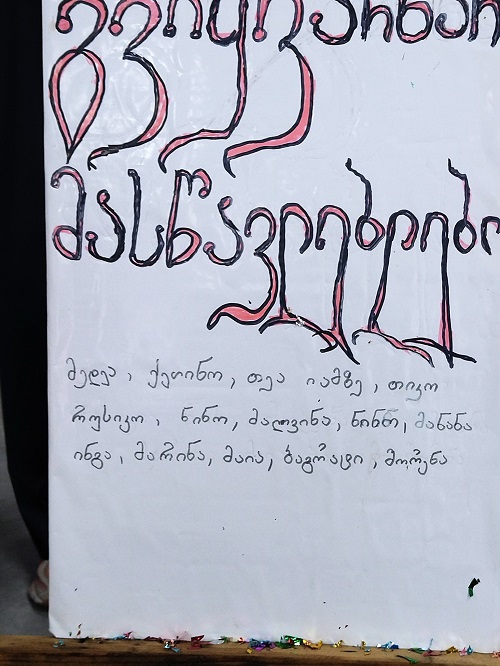 გვიყვარხარ
მასწავლებლებო
მედეა, ქეთინო, თეა იამზე, თიკო
რუსიკო, ნინო, მალვინა, ნინო, მანანა
ინგა, მარინა, მაია, ბაგრატი, მორენა